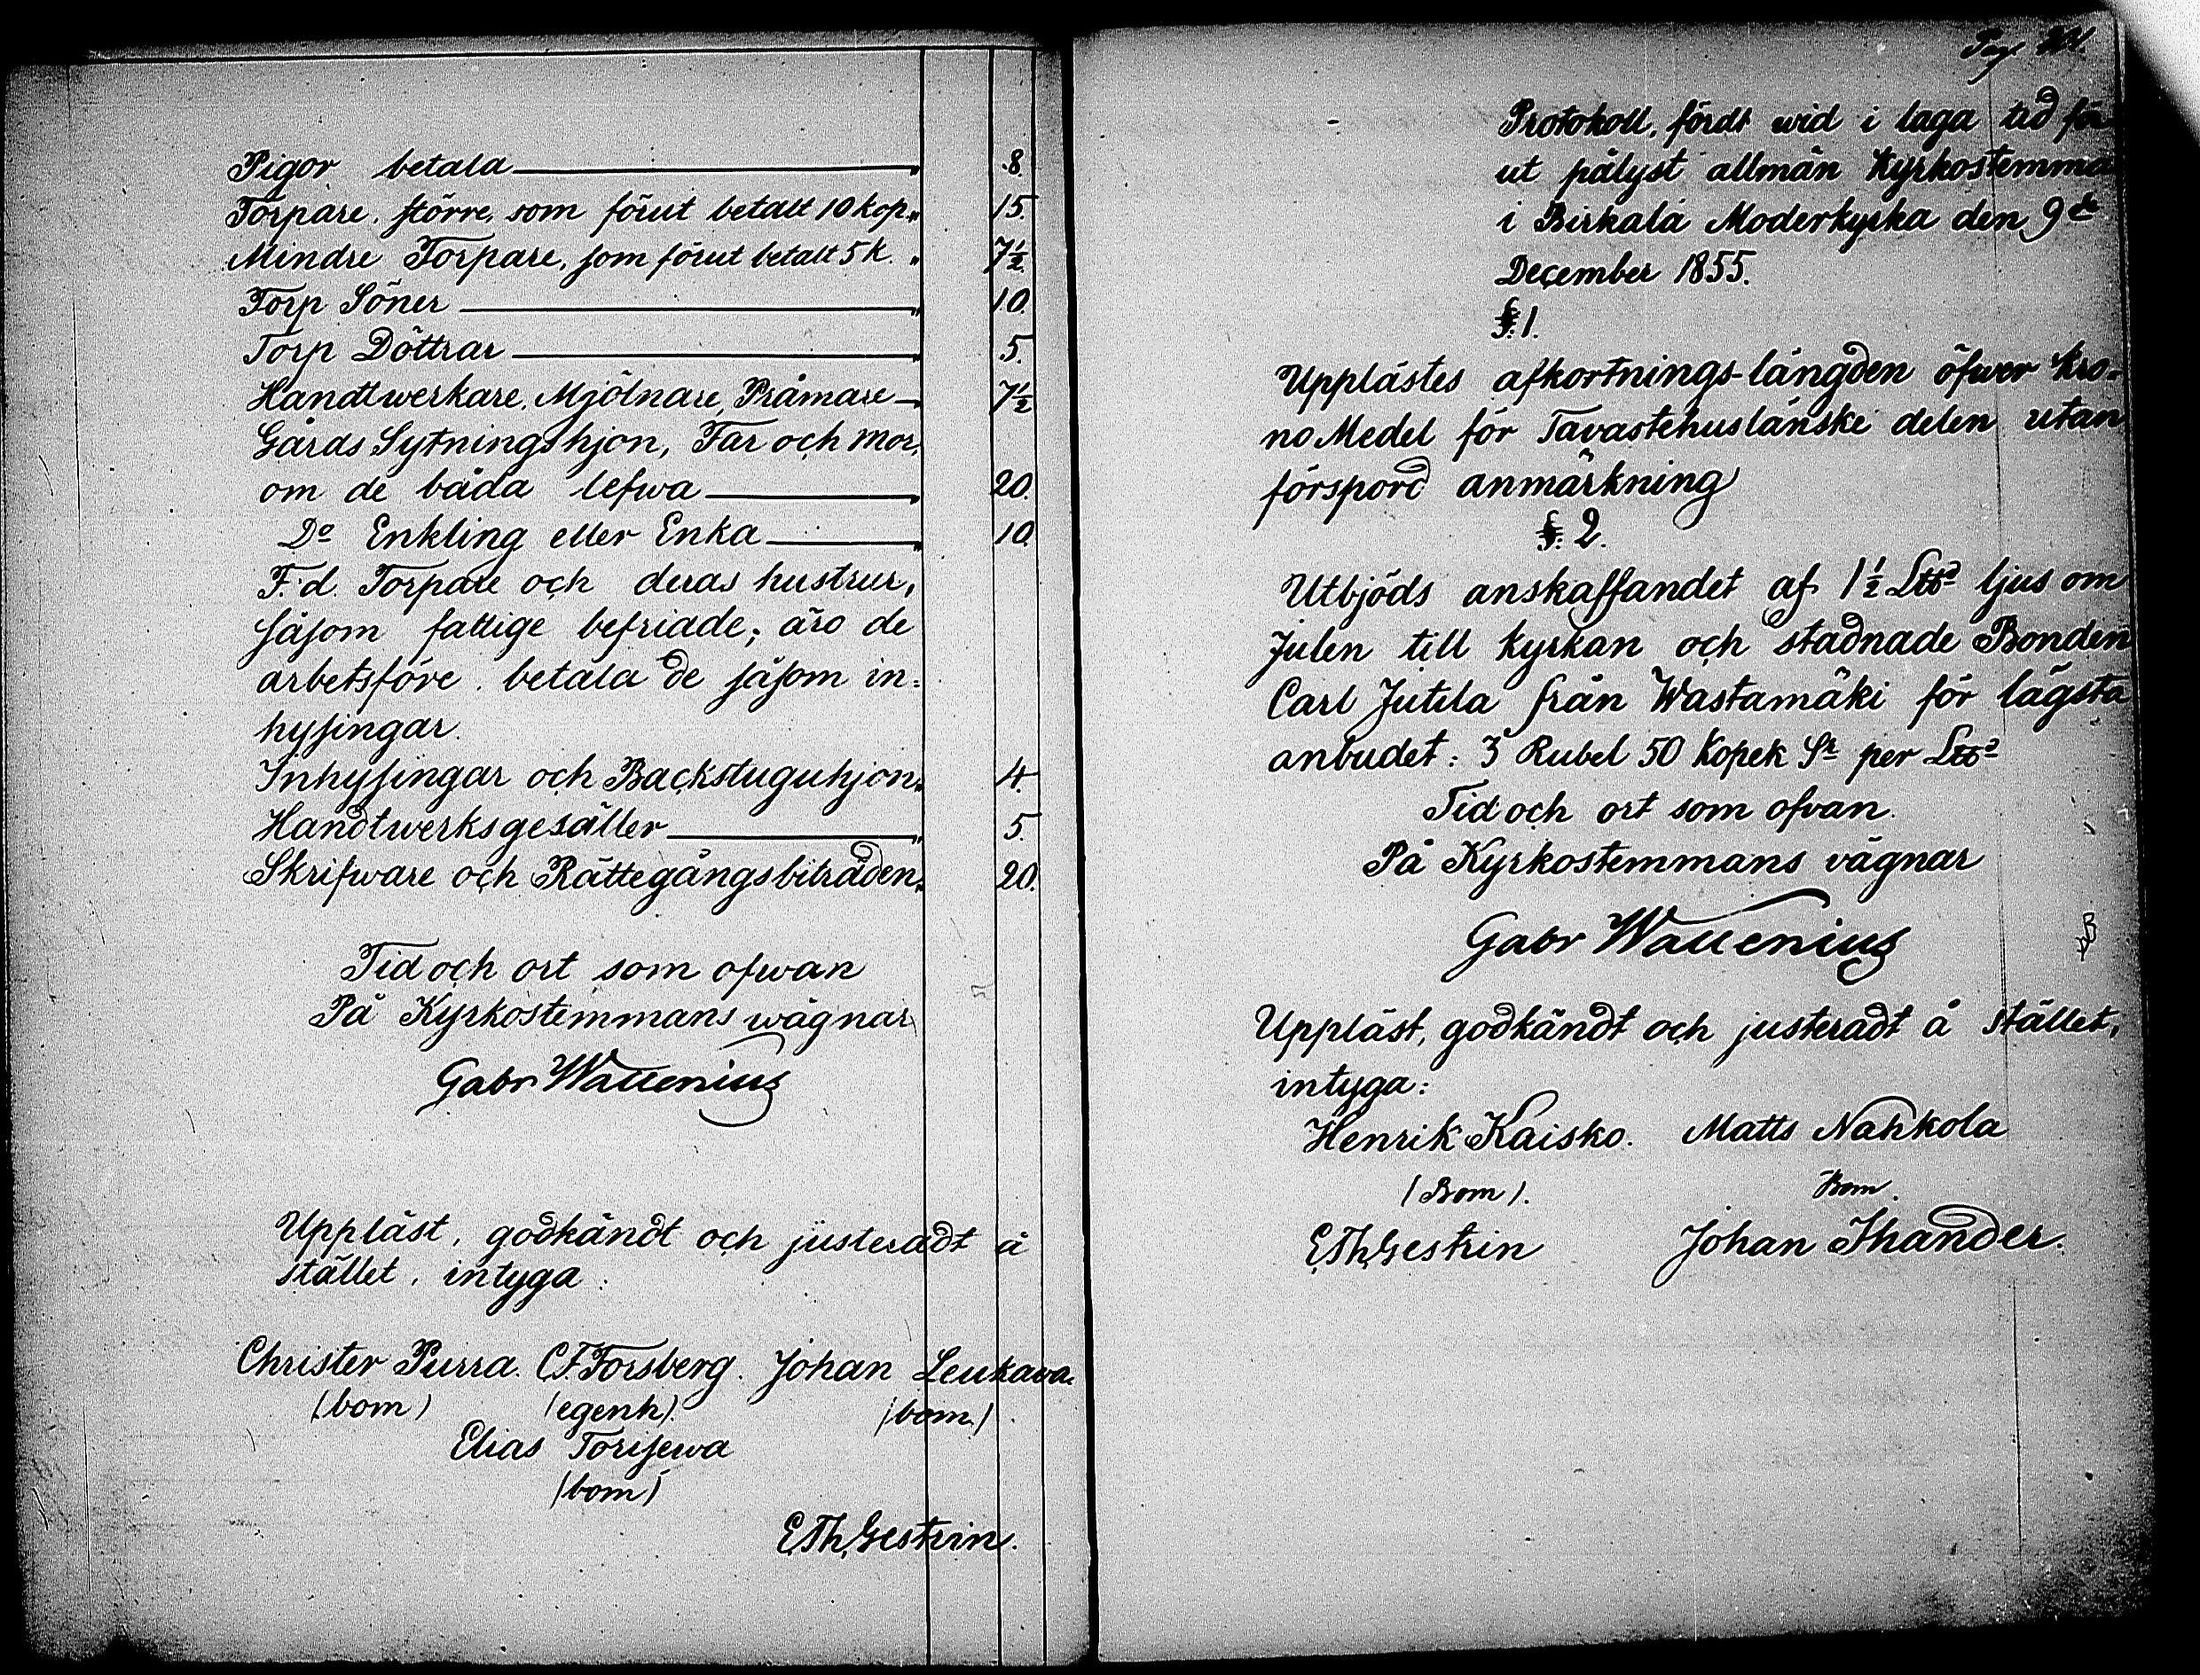 Pigor betala — „ 8.
Torpare, större, som förut betalt 10 kop. „ 15.
Mindre Torpare, som förut betalt 5 k. „ 7½
Torp Söner — „ 10.
Torp Döttrar — „ 5.
Handtwerkare, Mjölnare, Pråmare — „ 7½
Gårds Sytningshjon, Far och Mor,
om de båda lefwa — „ 20.
Do Enkling eller Enka — „ 10.
F. d. Torpare och deras hustrur,
såsom fattige befriade; äro de
arbetsföre, betala de såsom in=
hysingar.
Inhysingar och Backstuguhjon „ 4.
Handtwerksgesäller — „ 5.
Skrifware och Rättegångsbiträden „ 20.
Tid och ort som ofwan
På Kyrkostemmans wägnar
Gabr Wallenius
Uppläst, godkändt och justeradt å
stället, intyga:
Christer Purra. C.F. Forsberg. Johan Leukawa.
(bom) (egenh). (bom.)
Elias Torisewa
(bom)
E.Th. Gestrin.
Pag.
Protokoll, fördt wid i laga tid för
ut pålyst allmän Kyrkostemma
i Birkala Moderkyrka den 9de
December 1855.
§. 1.
Upplästes afkortnings-längden öfwer Kro-
no Medel för Tavastehuslänske delen utan
förspord anmärkning
§. 2.
Utbjöds anskaffandet af 1½ L℔d ljus om
Julen till kyrkan och stadnade Bonden
Carl Jutila från Wastamäki för lägsta
anbudet: 3 Rubel 50 Kopek Sr per L℔d
Tid och ort som ofvan.
På Kyrkostemmans vägnar
Gabr Wallenius
Uppläst, godkändt och justeradt å stället,
intyga:
Henrik Kaisko. Matts Nahkola
(Bom). Bom.
E.Th. Gestrin Johan Ihander.